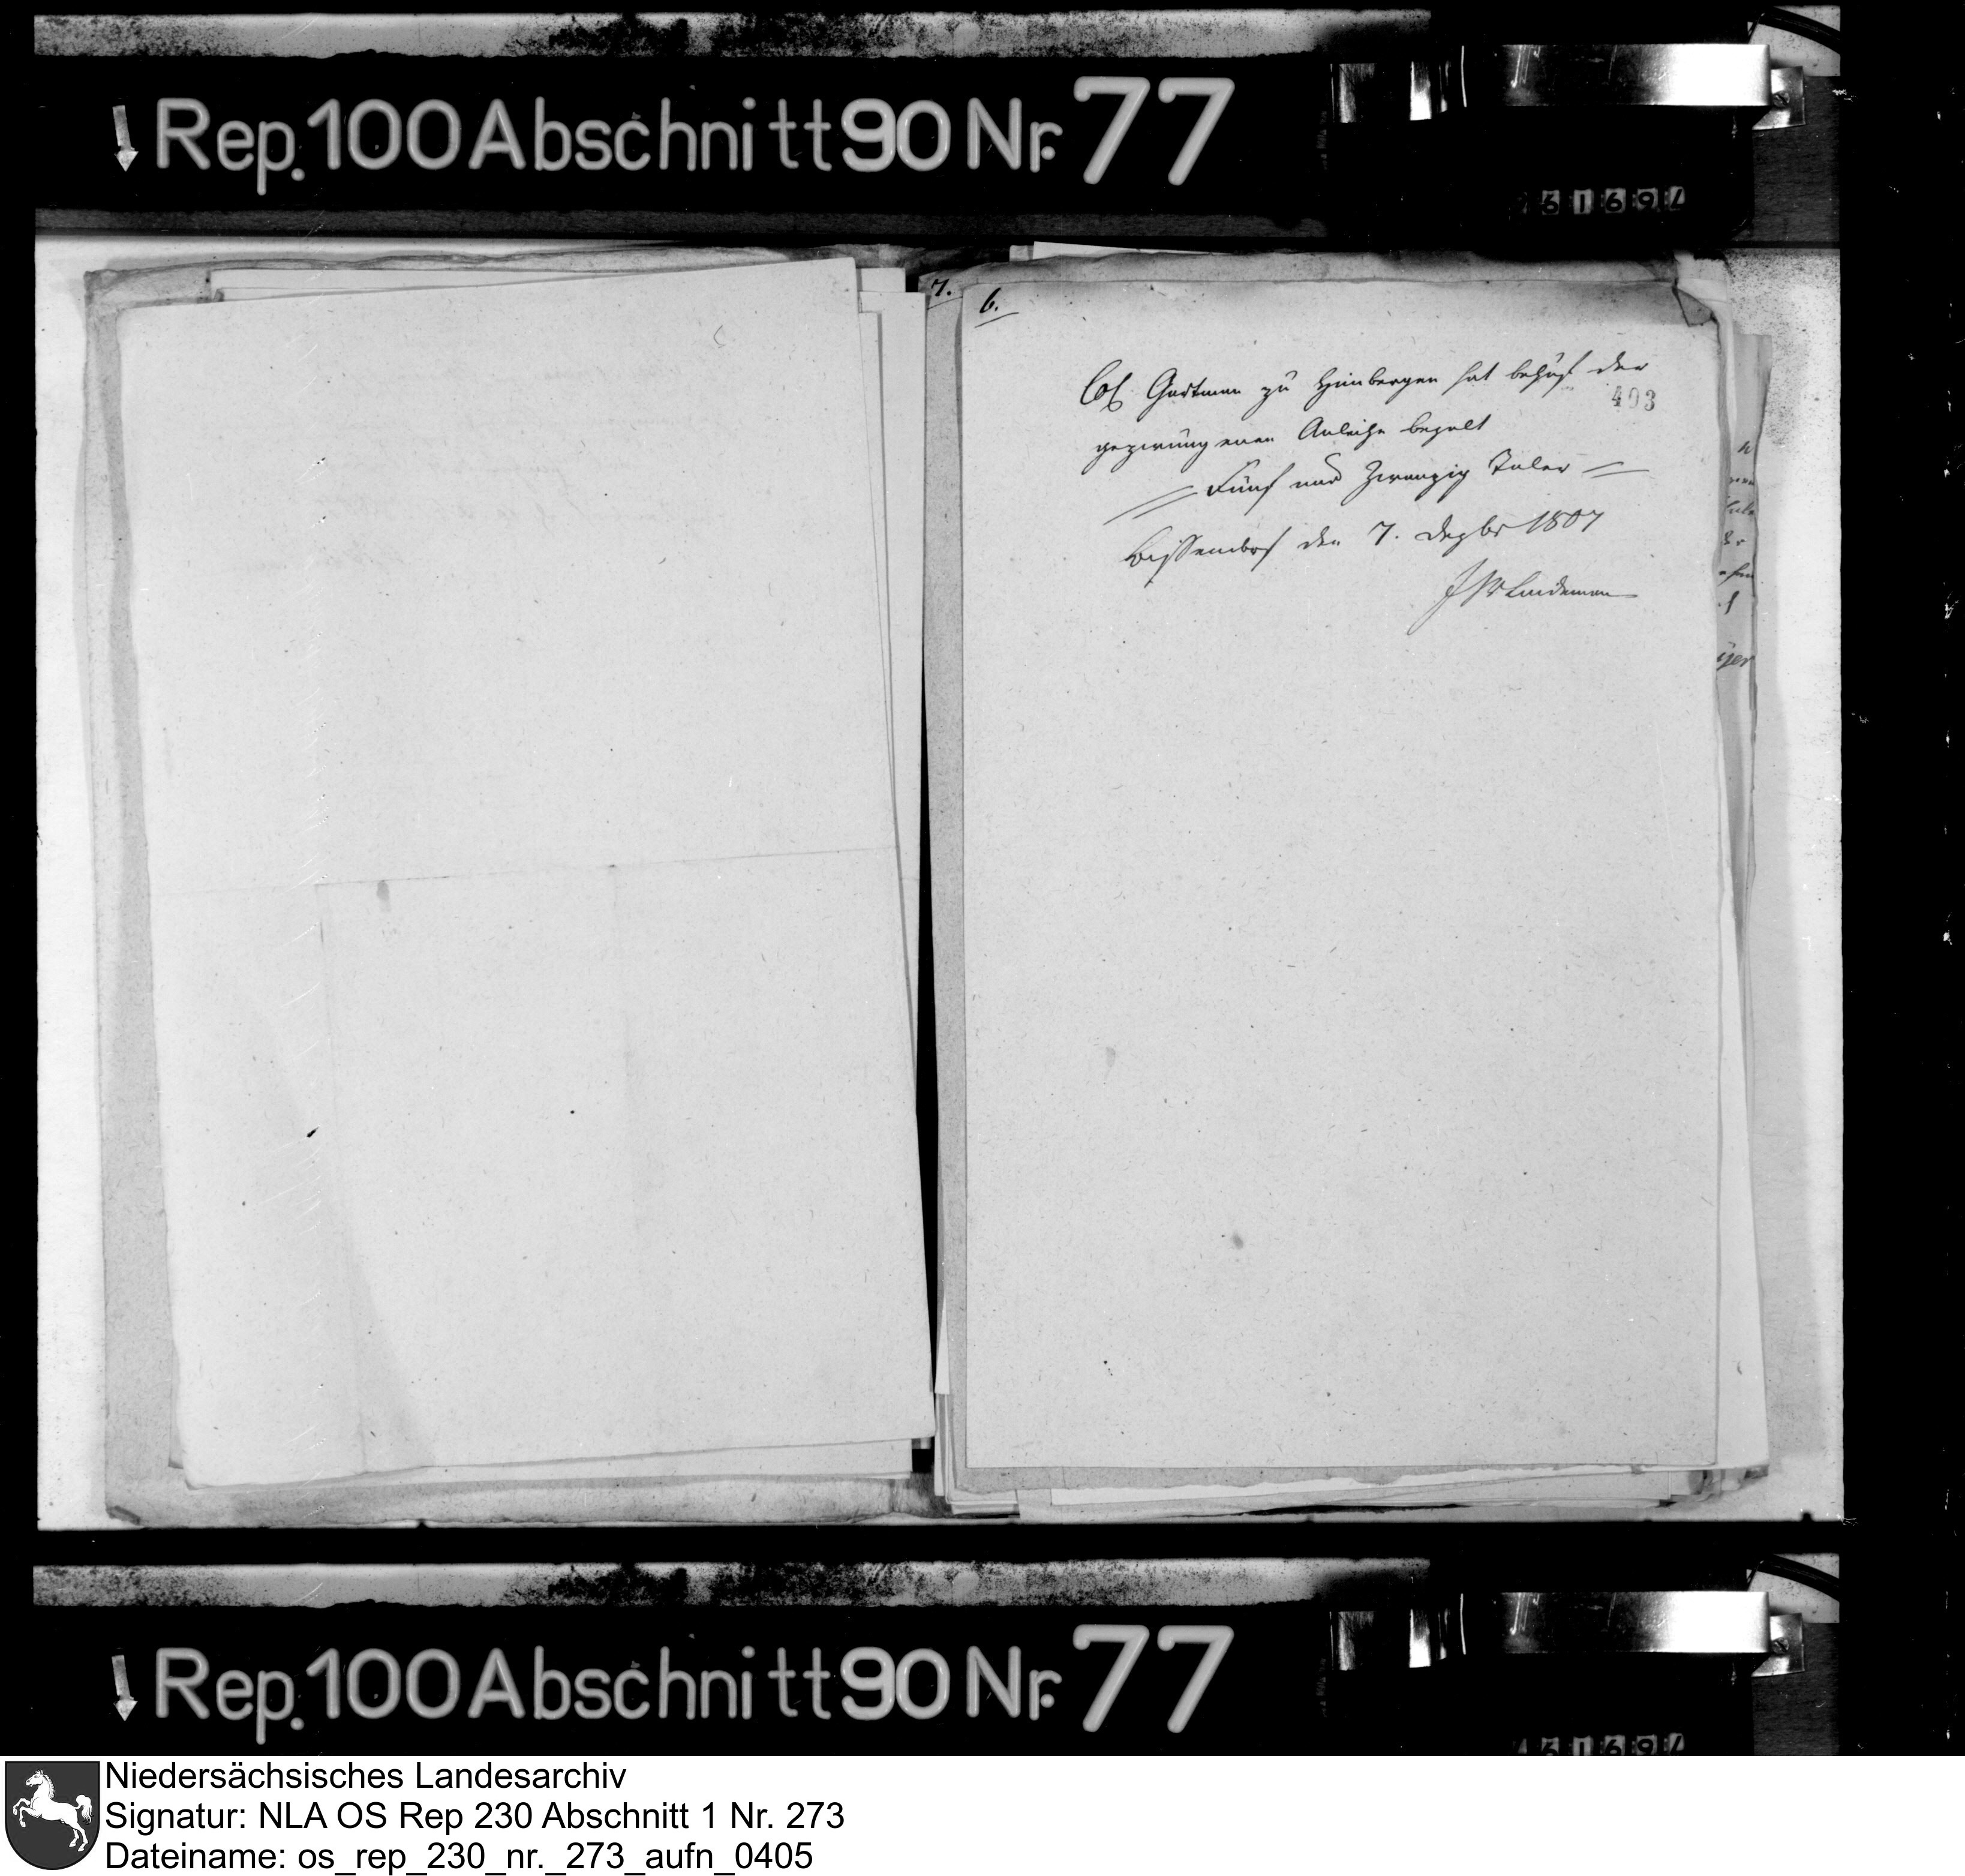 Rep. 100 Abschnitt 90 Nr. 77
7.
6.
Col Gartman zu Himbergen hat behuf der
403
gezwungenen Anleihe bezalt
Fünf und Zwanzig Taler
Bissendorf den 7. Dezbr 1807
Lindeman
Rep. 100 Abschnitt 90 Nr. 77
Niedersächsisches Landesarchiv
Signatur: NLA OS Rep 230 Abschnitt 1 Nr. 273
Dateiname: os_rep_230_nr._273_aufn_0405